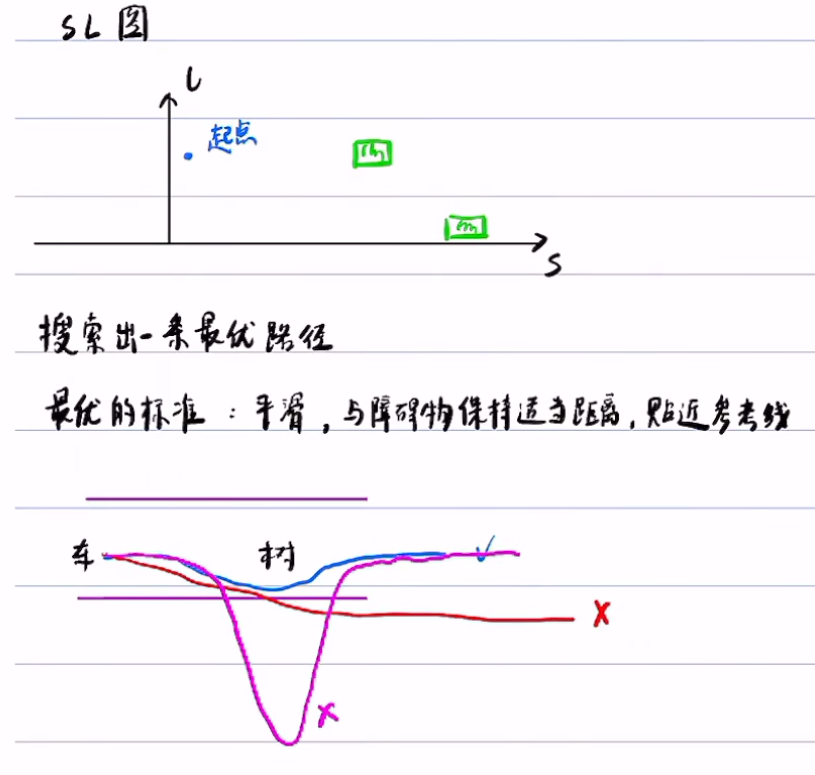 SL图
L
起点
S
搜索出一条最优路径
最优的标准：平滑，与障碍物保持适当距离，贴近参考线
车 树 √
X
X